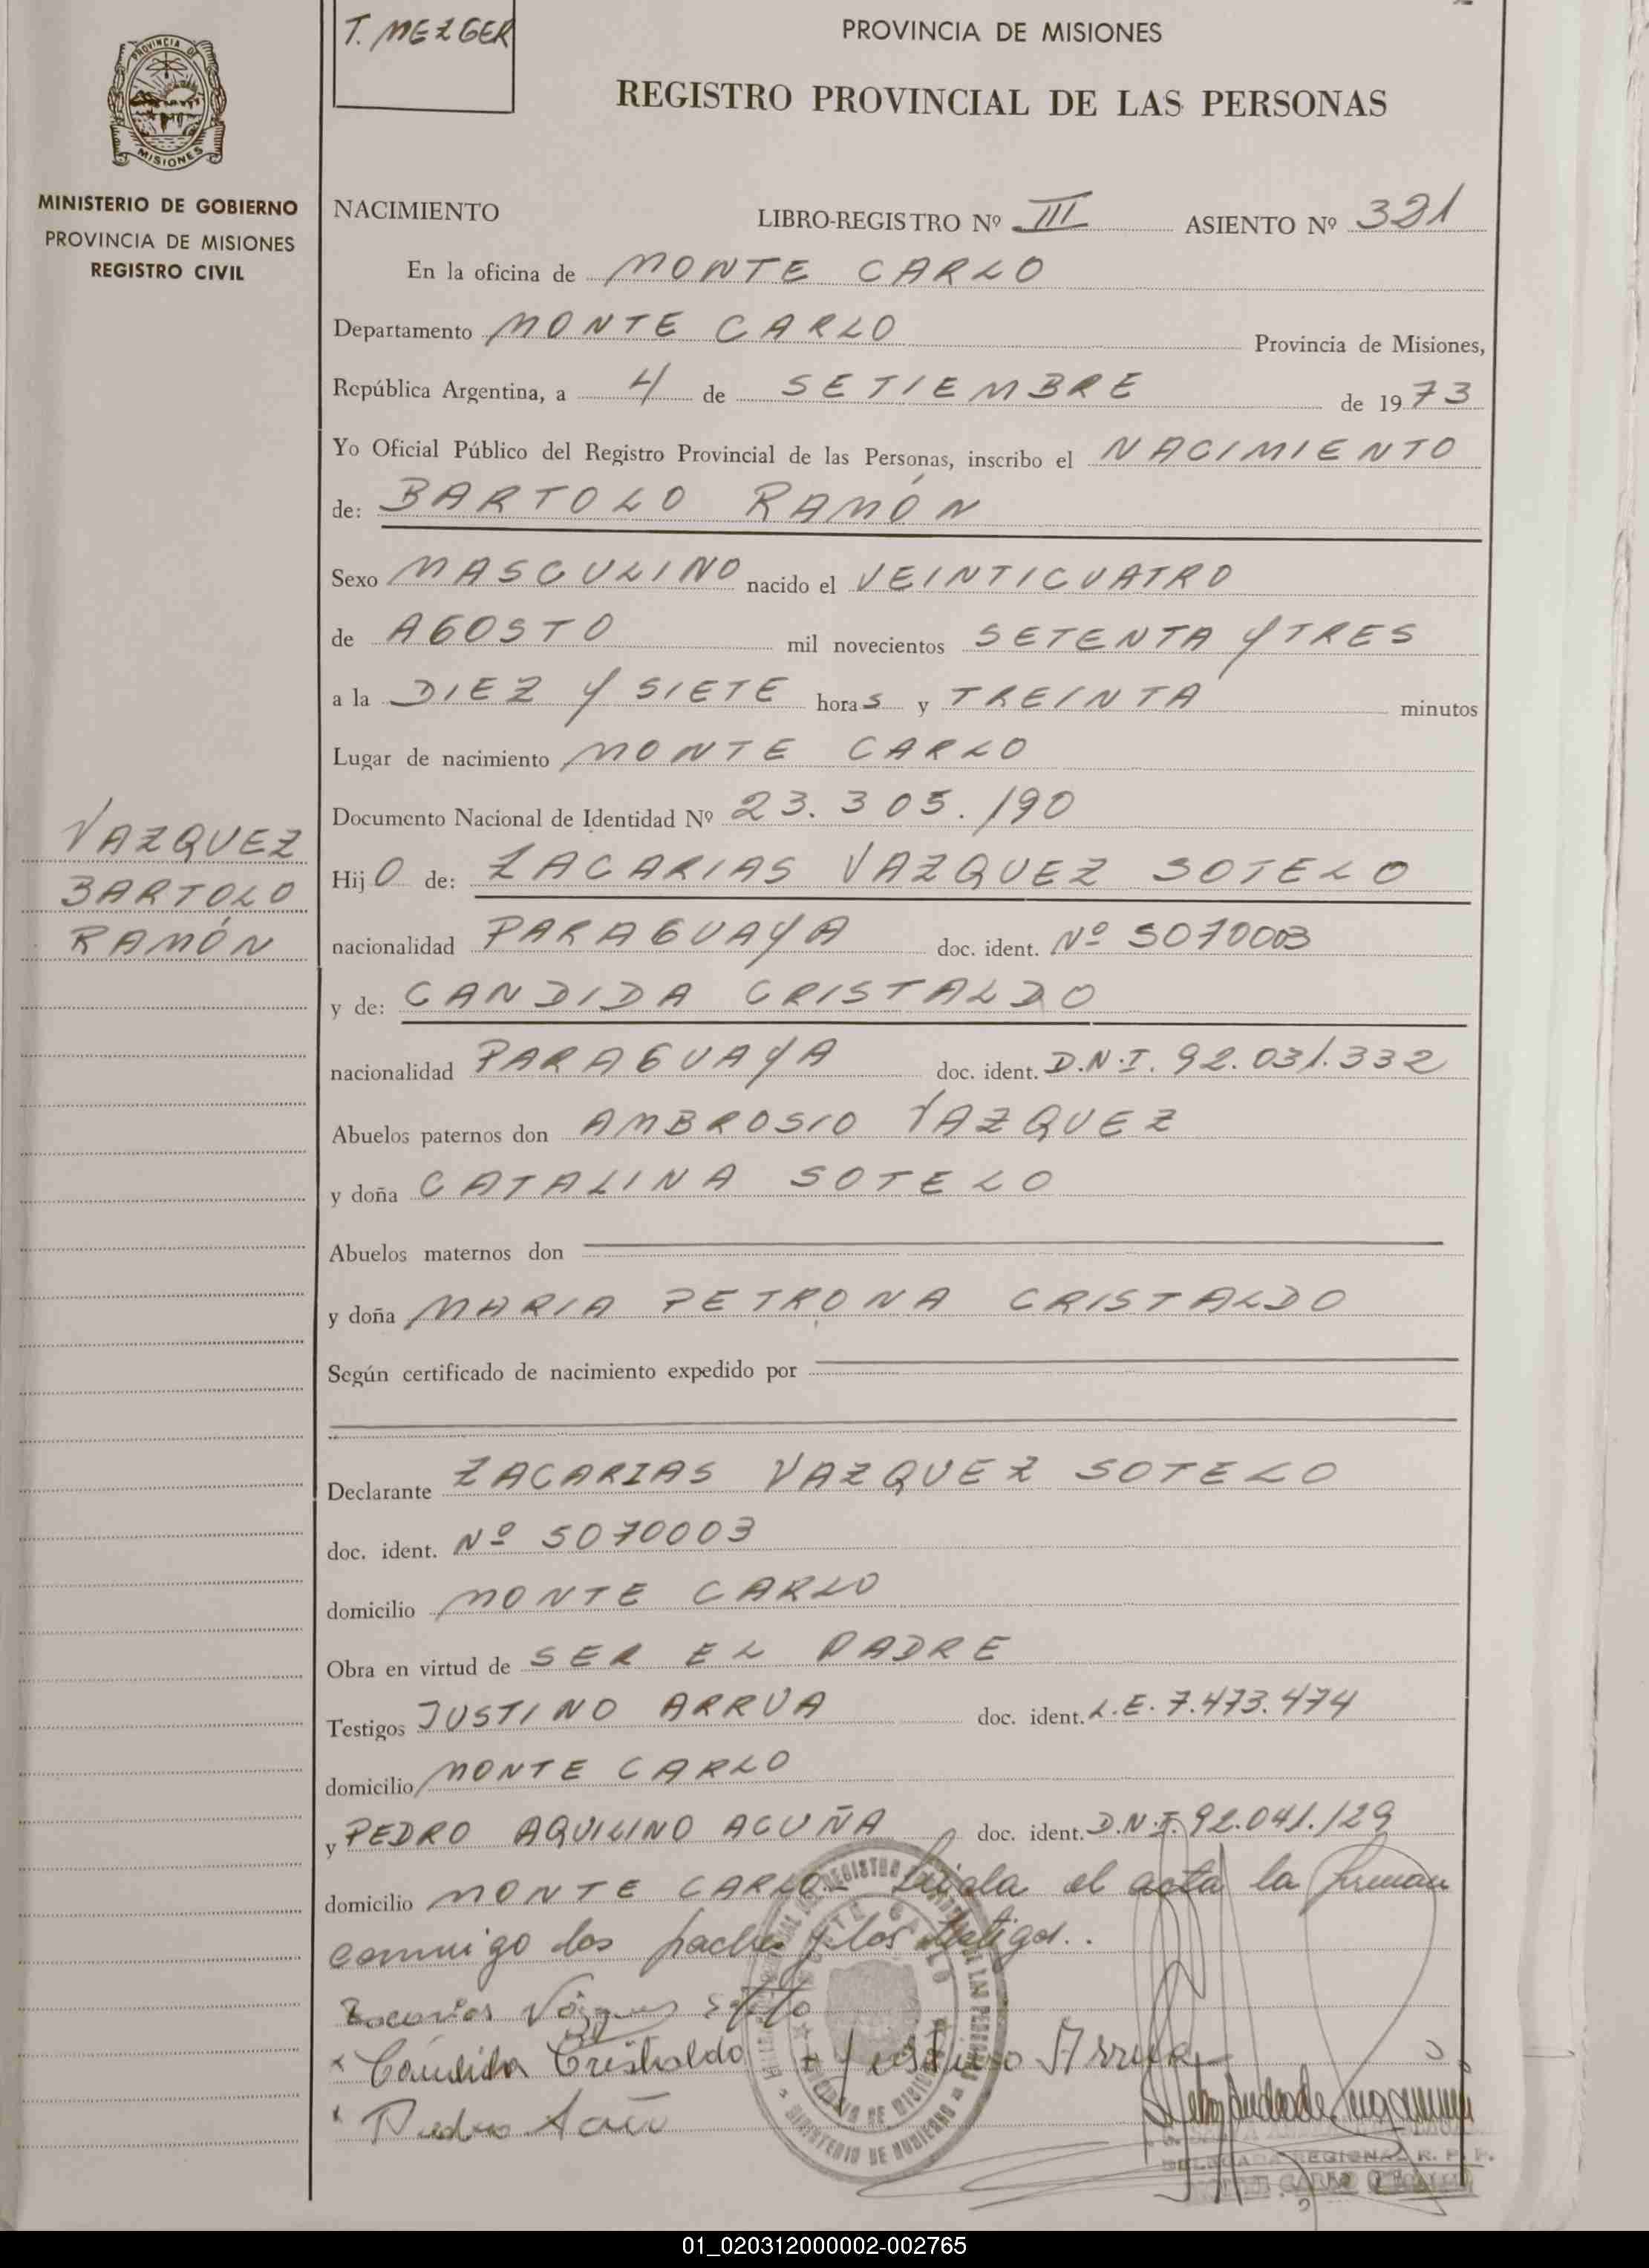 T. MEZGER
PROVINCIA DE MISIONES
REGISTRO PROVINCIAL DE LAS PERSONAS
PROVINCIA DE
MISIONES
MINISTERIO DE GOBIERNO
PROVINCIA DE MISIONES
REGISTRO CIVIL
NACIMIENTO LIBRO-REGISTRO Nº III ASIENTO Nº 321
En la oficina de MONTE CARLO
Departamento MONTE CARLO Provincia de Misiones,
República Argentina, a 4 de SETIEMBRE de 1973
Yo Oficial Público del Registro Provincial de las Personas, inscribo el NACIMIENTO
de: BARTOLO RAMÓN
Sexo MASCULINO nacido el VEINTICUATRO
de AGOSTO mil novecientos SETENTA Y TRES
a la DIEZ Y SIETE horas y TREINTA minutos
Lugar de nacimiento MONTE CARLO
Documento Nacional de Identidad Nº 23.305.190
VAZQUEZ
BARTOLO
RAMÓN
Hijo de: ZACARIAS VAZQUEZ SOTELO
nacionalidad PARAGUAYA doc. ident. Nº 5070003
y de: CANDIDA CRISTALDO
nacionalidad PARAGUAYA doc. ident. D.N.I. 92.031.332
Abuelos paternos don AMBROSIO VAZQUEZ
y doña CATALINA SOTELO
Abuelos maternos don
y doña MARIA PETRONA CRISTALDO
Según certificado de nacimiento expedido por
Declarante ZACARIAS VAZQUEZ SOTELO
doc. ident. Nº 5070003
domicilio MONTE CARLO
Obra en virtud de SER EL PADRE
Testigos JUSTINO ARRUA doc. ident. L.E. 7.473.474
domicilio MONTE CARLO
y PEDRO AQUILINO ACUÑA doc. ident. D.N.I. 92.041.129
domicilio MONTE CARLO. Leída el acta la firman
conmigo los padres y los testigos..
Zacarias Vázquez Sotelo
x Cándida Cristaldo + Justino Arrua
Pedro Acuña
MINISTERIO DE GOBIERNO
DELEGADA REGIONAL R. P. P.
01_020312000002-002765